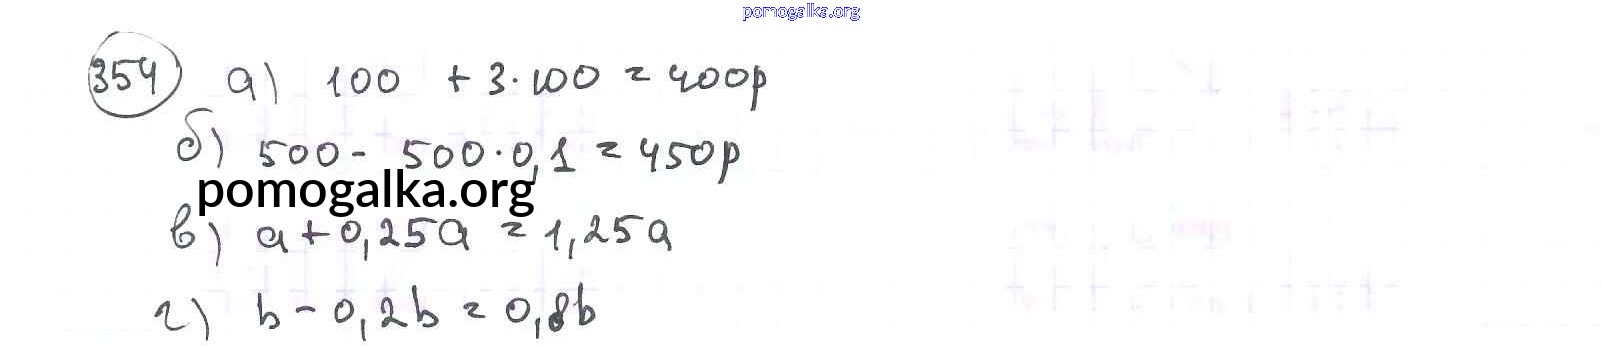 pomogalka.org
354 а) 100 + 3·100 = 400р
б) 500 - 500·0,1 = 450р
pomogalka.org
в) a + 0,25a = 1,25a
г) b - 0,2b = 0,8b